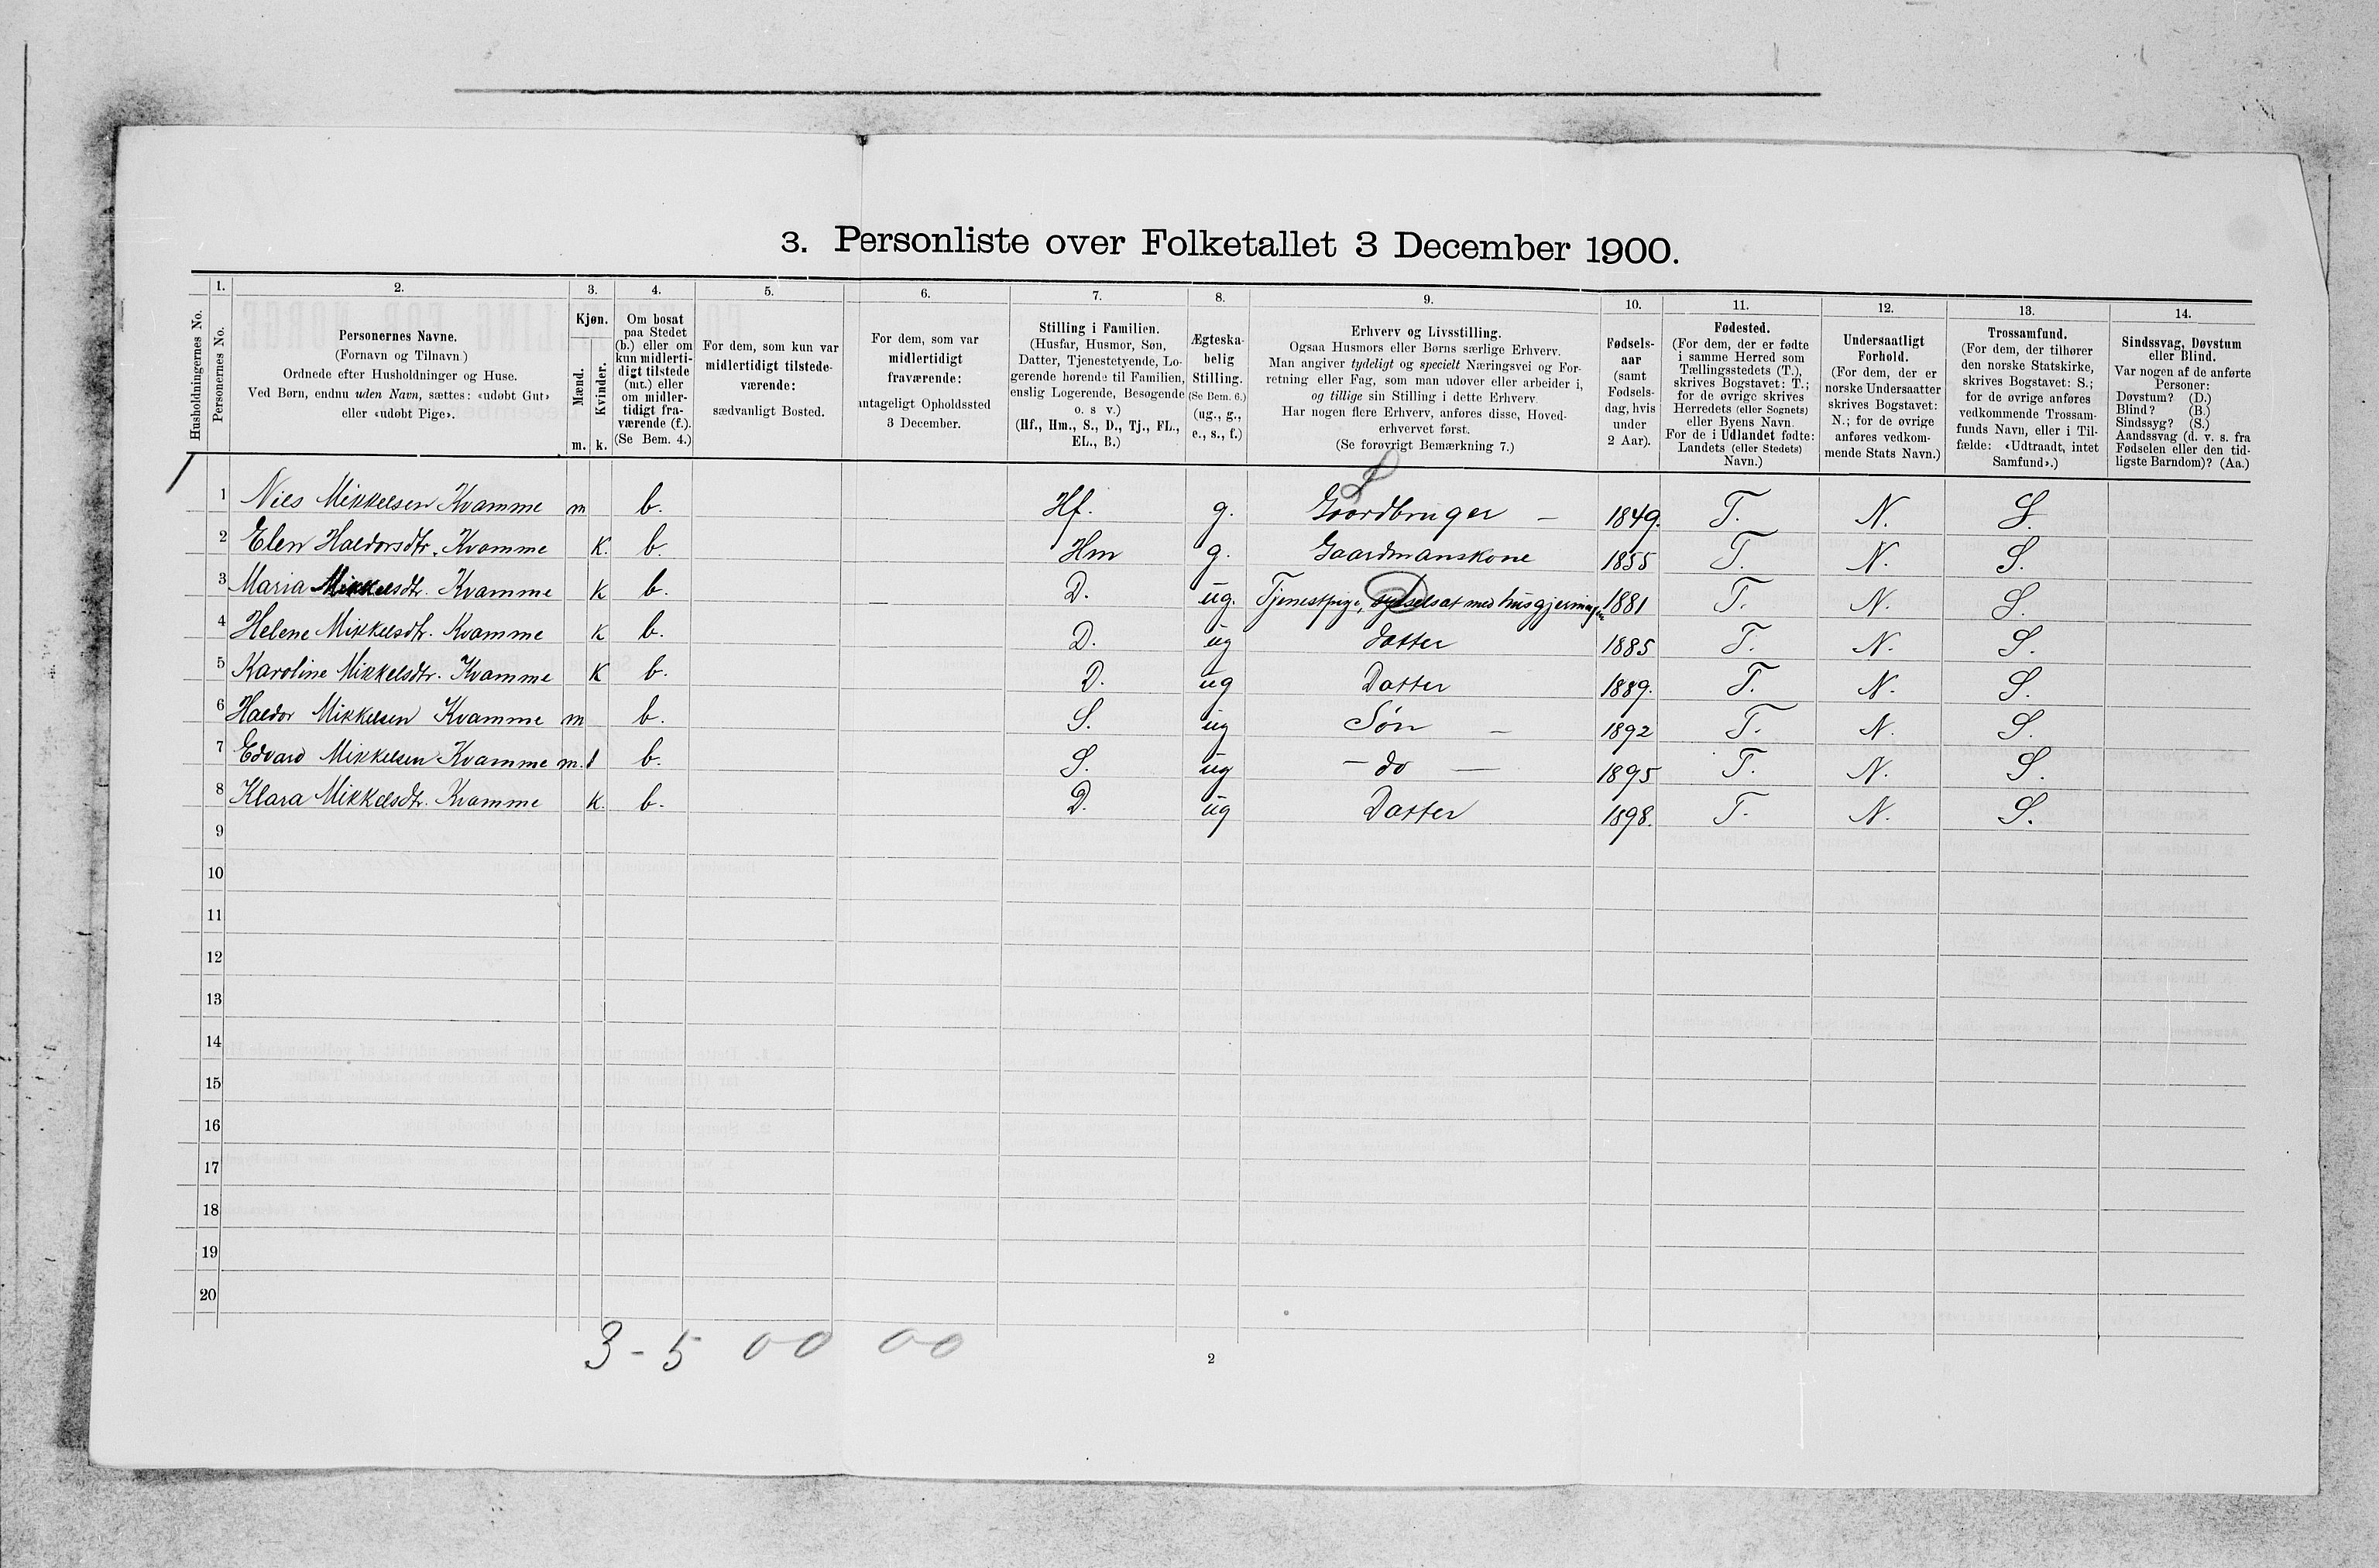 3. Personliste over Folketallet 3 December 1900.
1. 2. 3. 4. 5. 6. 7. 8. 9. 10. 11. 12. 13. 14.
Husholdningernes No.
Personernes No.
Personernes Navne.
(Fornavn og Tilnavn)
Ordnede efter Husholdninger og Huse.
Ved Børn, endnu uden Navn, sættes: «udøbt Gut»
eller «udøbt Pige».
Kjøn.
Mænd.
Kvinder.
m. k.
Om bosat
paa Stedet
(b.) eller om
kun midlerti-
digt tilstede
(mt.) eller
om midler-
tidigt fra-
værende (f.).
(Se Bem. 4.)
For dem, som kun var
midlertidigt tilstede-
værende:
sædvanligt Bosted.
For dem, som var
midlertidigt
fraværende:
antageligt Opholdssted
3 December.
Stilling i Familien.
(Husfar, Husmor, Søn,
Datter, Tjenestetyende, Lo-
gerende hørende til Familien,
enslig Logerende, Besøgende
o. s v.)
(Hf., Hm., S., D., Tj., FL.,
EL., B.)
Ægteska-
belig
Stilling.
(Se Bem. 6.)
(ug., g.,
e., s., f.)
Erhverv og Livsstilling.
Ogsaa Husmors eller Børns særlige Erhverv.
Man angiver tydeligt og specielt Næringsvei og For-
retning eller Fag, som man udøver eller arbeider i,
og tillige sin Stilling i dette Erhverv.
Har nogen flere Erhverv, anføres disse, Hoved-
erhvervet først.
(Se forøvrigt Bemærkning 7.)
Fødsels-
aar
(samt
Fødsels-
dag, hvis
under
2 Aar).
Fødested.
(For dem, der er fødte
i samme Herred som
Tællingsstedets (T.),
skrives Bogstavet: T.;
for de øvrige skrives
Herredets (eller Sognets)
eller Byens Navn.
For de i Udlandet fødte:
Landets (eller Stedets)
Navn.)
Undersaatligt
Forhold.
(For dem, der er
norske Undersaatter
skrives Bogstavet:
N.; for de øvrige
anføres vedkom-
mende Stats Navn.)
Trossamfund.
(For dem, der tilhører
den norske Statskirke,
skrives Bogstavet: S.;
for de øvrige anføres
vedkommende Trossam-
funds Navn, eller i Til-
fælde: «Udtraadt, intet
Samfund».)
Sindssvag, Døvstum
eller Blind.
Var nogen af de anførte
Personer:
Døvstum? (D.)
Blind? (B.)
Sindssyg? (S.)
Aandssvag (d. v. s. fra
Fødselen eller den tid-
ligste Barndom)? (Aa.)
1 Niels Mikkelsen Kvamme m b. Hf. g. Gaardbruger – 1849. T. N. S.
2 Elen Haldorsdtr. Kvamme K. b. Hm g. Gaardmanskone 1855 T. N. S.
3 Maria Mikkelsdtr. Kvamme k b. D. ug. Tjenestpige, sysselsat med husgjerninger 1881 T. N. S.
4 Helene Mikkelsdtr. Kvamme k b. D. ug datter 1885 T. N. S.
5 Karoline Mikkelsdtr. Kvamme K b. D. ug Datter 1889. T. N. S.
6 Haldor Mikkelsen Kvamme m b. S. ug Søn – 1892 T. N. S.
7 Edvard Mikkelsen Kvamme m. b. S. ug – do – 1895 T. N. S.
8 Klara Mikkelsdtr. Kvamme k. b. D. ug Datter 1898. T. N. S.
9
10
11
12
13
14
15
16
17
18
19
20
3 - 5 00 00
2